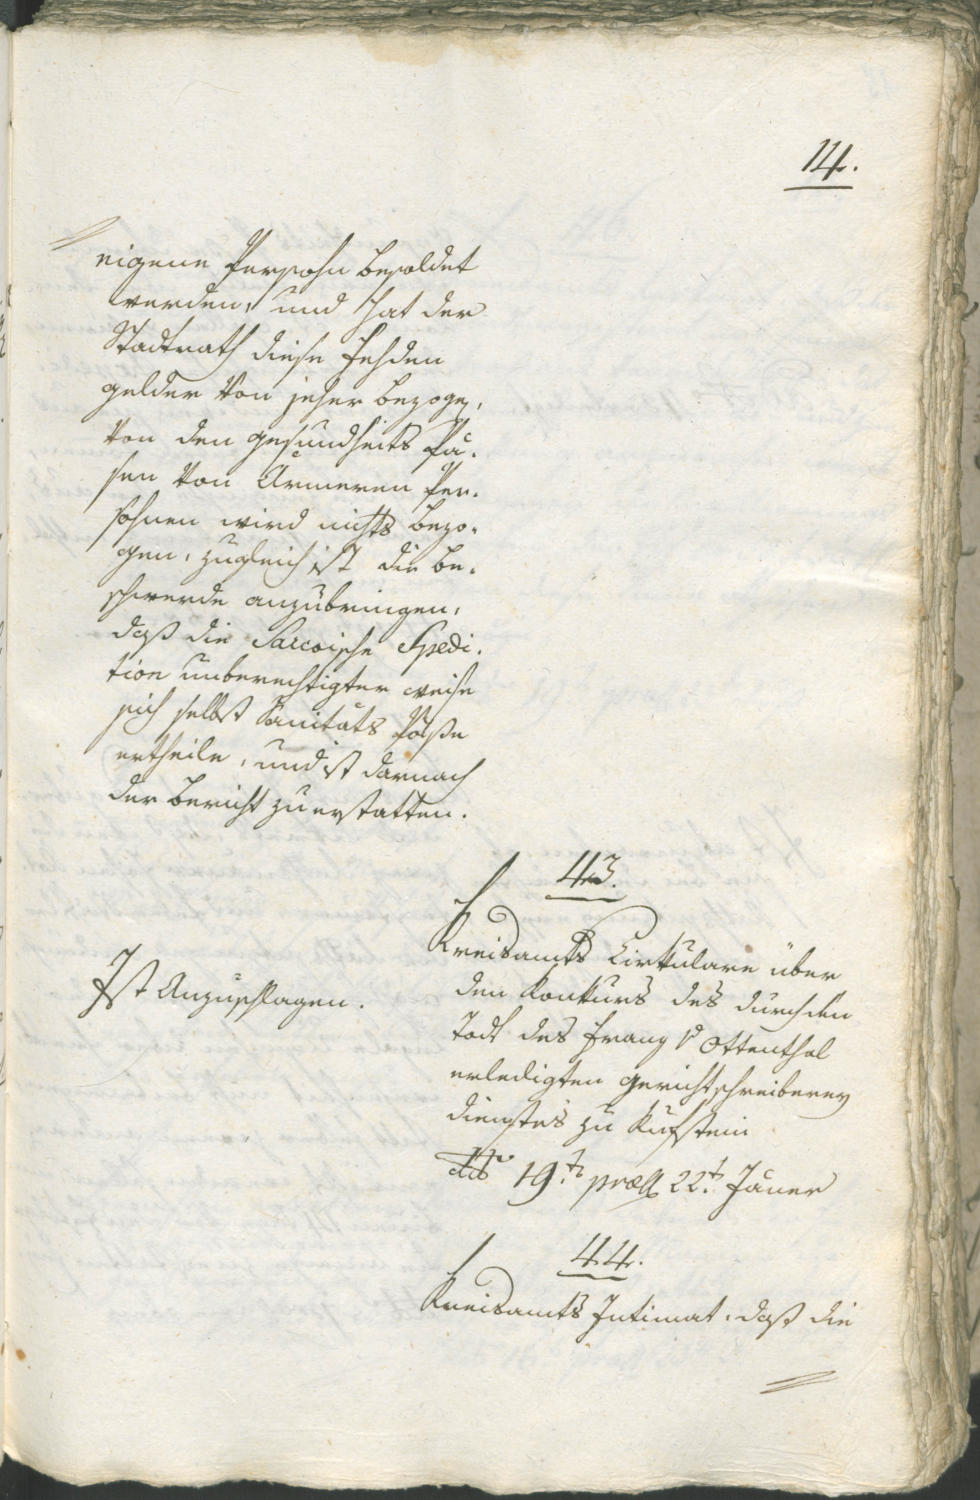 14.
eigene Persohn besoldet
werden, und hat der
Stadtrath diese
gelder von jeher bezogen,
von den gesundheits Pä„
sen von Ärmeren Per„
sohnen wird nichts bezo„
gen, zugleich ist die Be„
schwerde anzubringen,
daß die Sarcoische Spedi„
tion unberechtigter weise
sich selbst Sanitäts Päße
ertheile, und ist darnach
der Bericht zu erstatten.
43.
Kreisamts Cirkulare über
den Konkurs des durch den
Todt des Franz v Ottenthal
erledigten gerichtschreiberey
dienstes zu Kufstein
dto 19t. præs. 22t. Jäner
Ist Anzuschlagen.
44.
Kreisamts Intimat, daß die